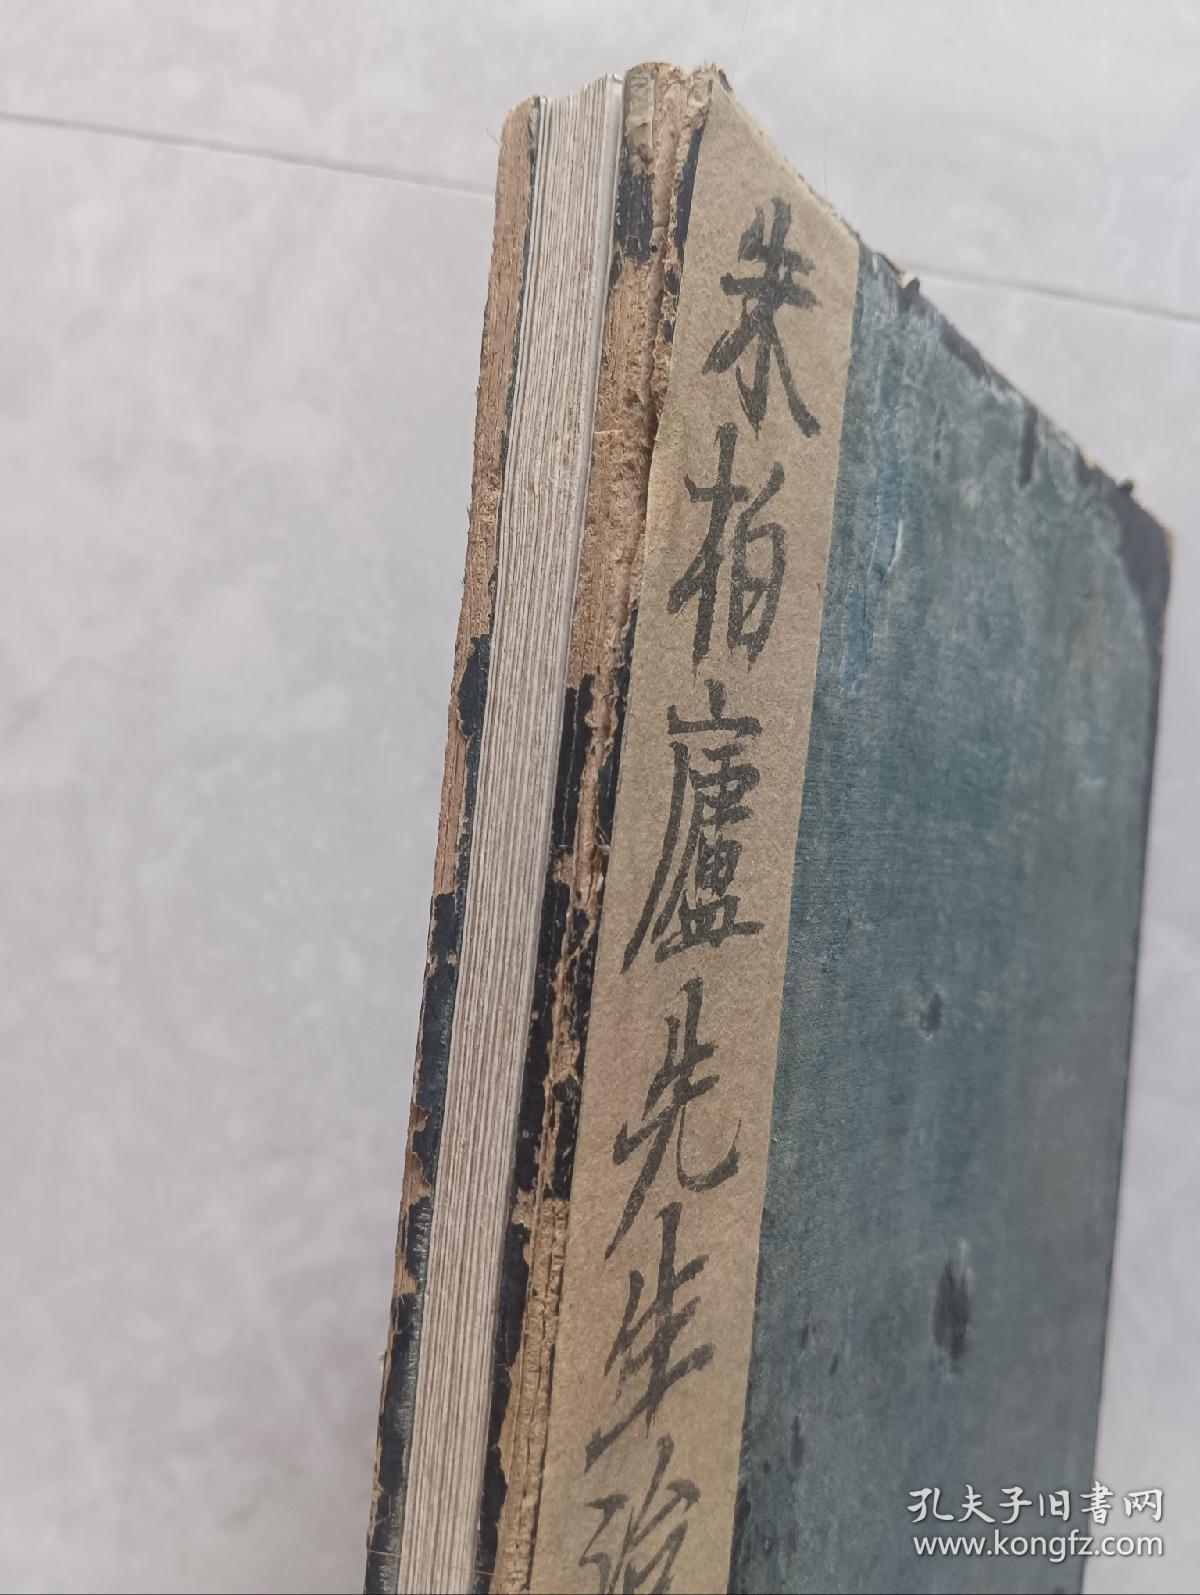 朱柏廬先生治
孔夫子旧書网
www.kongfz.com